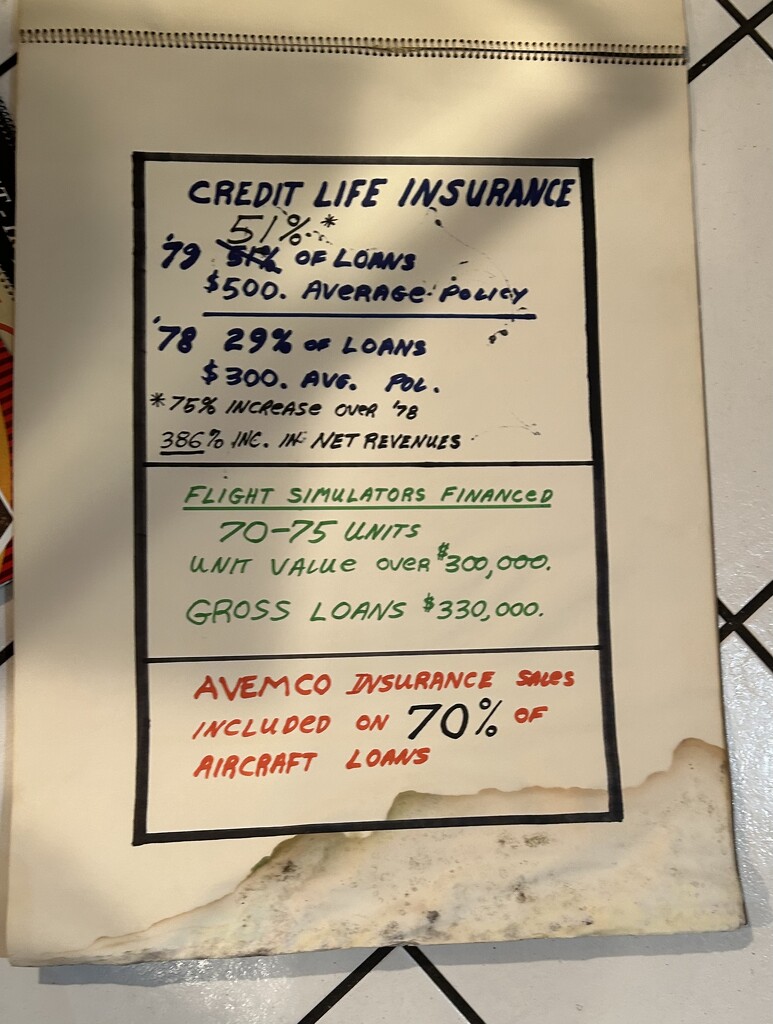 CREDIT LIFE INSURANCE
51%*
'79 51% OF LOANS
$500. AVERAGE POLICY
'78 29% OF LOANS
$300. AVG. POL.
*75% INCREASE OVER '78
386% INC. IN NET REVENUES
FLIGHT SIMULATORS FINANCED
70-75 UNITS
UNIT VALUE OVER $300,000.
GROSS LOANS $330,000.
AVEMCO INSURANCE SALES
INCLUDED ON 70% OF
AIRCRAFT LOANS